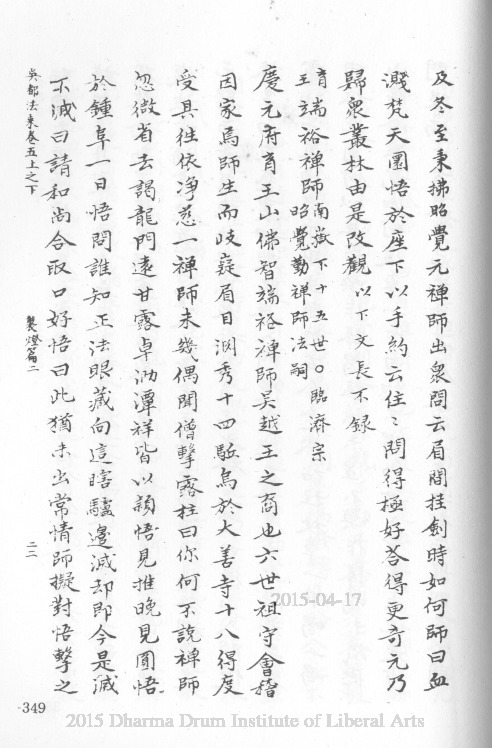 及冬至秉拂昭覺元禪師出衆問云眉間挂劍時如何師曰血
濺梵天圜悟於座下以手約云住〻問得極好荅得更竒元乃
歸衆叢林由是改觀以下文長不录
育王端裕禪師南嶽下十五世○臨濟宗
昭覺勤禪師法嗣
慶元府育王山佛智端裕禪師吳越王之裔也六世祖守會稽
因家焉師生而岐嶷眉目渊秀十四馸烏於大善寺十八得度
受具徃依净慈一禪師未幾偶聞僧擊露柱曰你何不說禪師
忽微省去謁龍門遠甘露卓泐潭祥皆以頴悟見推晚見圜悟
於鍾阜一日悟問誰知正法眼藏向這瞎驢邊滅却即今是滅
不滅曰請和尚合取口好悟曰此猶未出常情師擬對悟擊之
吳都法乘卷五上之下
製燈篇二
二二
349
2015-04-17
2015 Dharma Drum Institute of Liberal Arts